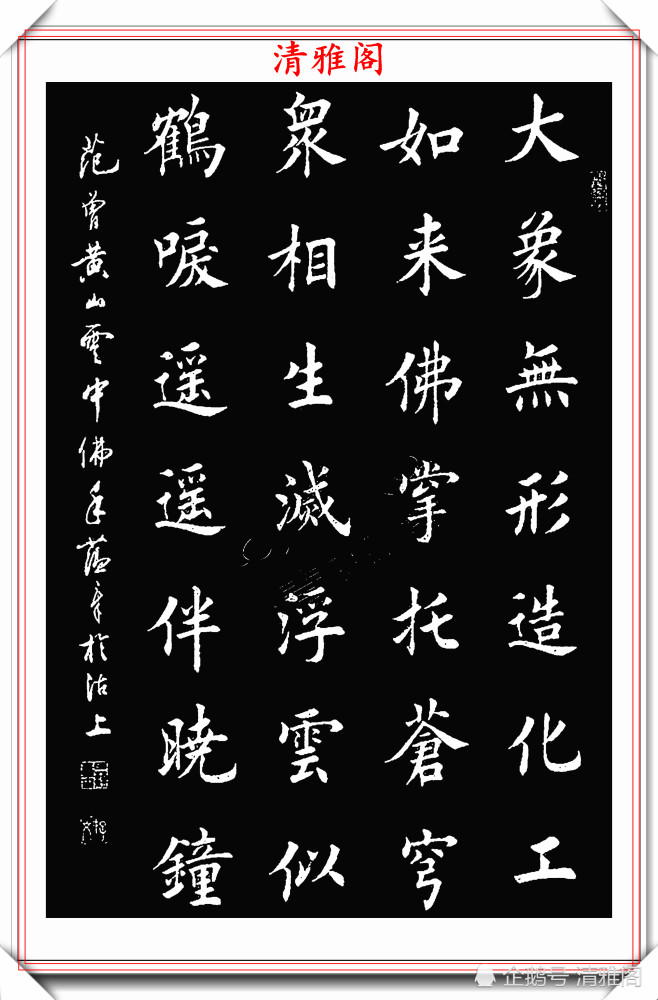 清雅阁
大象無形造化工
如来佛掌托蒼穹
眾相生滅浮雲似
鶴唳遥遥伴曉鐘
范曾黄山雲中佛手蕴章於沽上
企鹅号 清雅阁